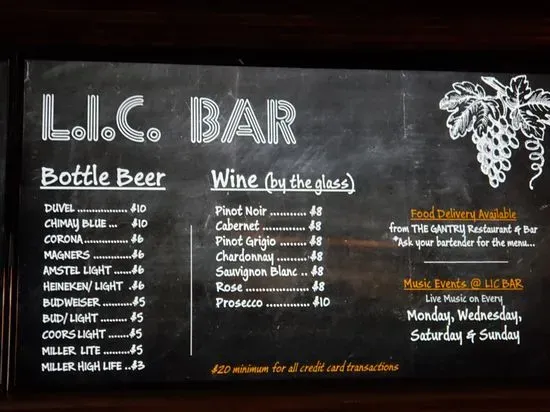 L.I.C. BAR
Bottle Beer
DUVEL ................ $10
CHIMAY BLUE ... $10
CORONA ............ $6
MAGNERS .......... $6
AMSTEL LIGHT ..... $6
HEINEKEN/ LIGHT . $6
BUDWEISER ........ $5
BUD/ LIGHT ........ $5
COORS LIGHT ...... $5
MILLER LITE ....... $5
MILLER HIGH LIFE .. $3
Wine (by the glass)
Pinot Noir ........... $8
Cabernet ............. $8
Pinot Grigio ........ $8
Chardonnay ......... $8
Sauvignon Blanc .. $8
Rose ................... $8
Prosecco ............ $10
$20 minimum for all credit card transactions
Food Delivery Available
from THE GANTRY Restaurant & Bar
*Ask your bartender for the menu...
Music Events @ LIC BAR
Live Music on Every
Monday, Wednesday,
Saturday & Sunday